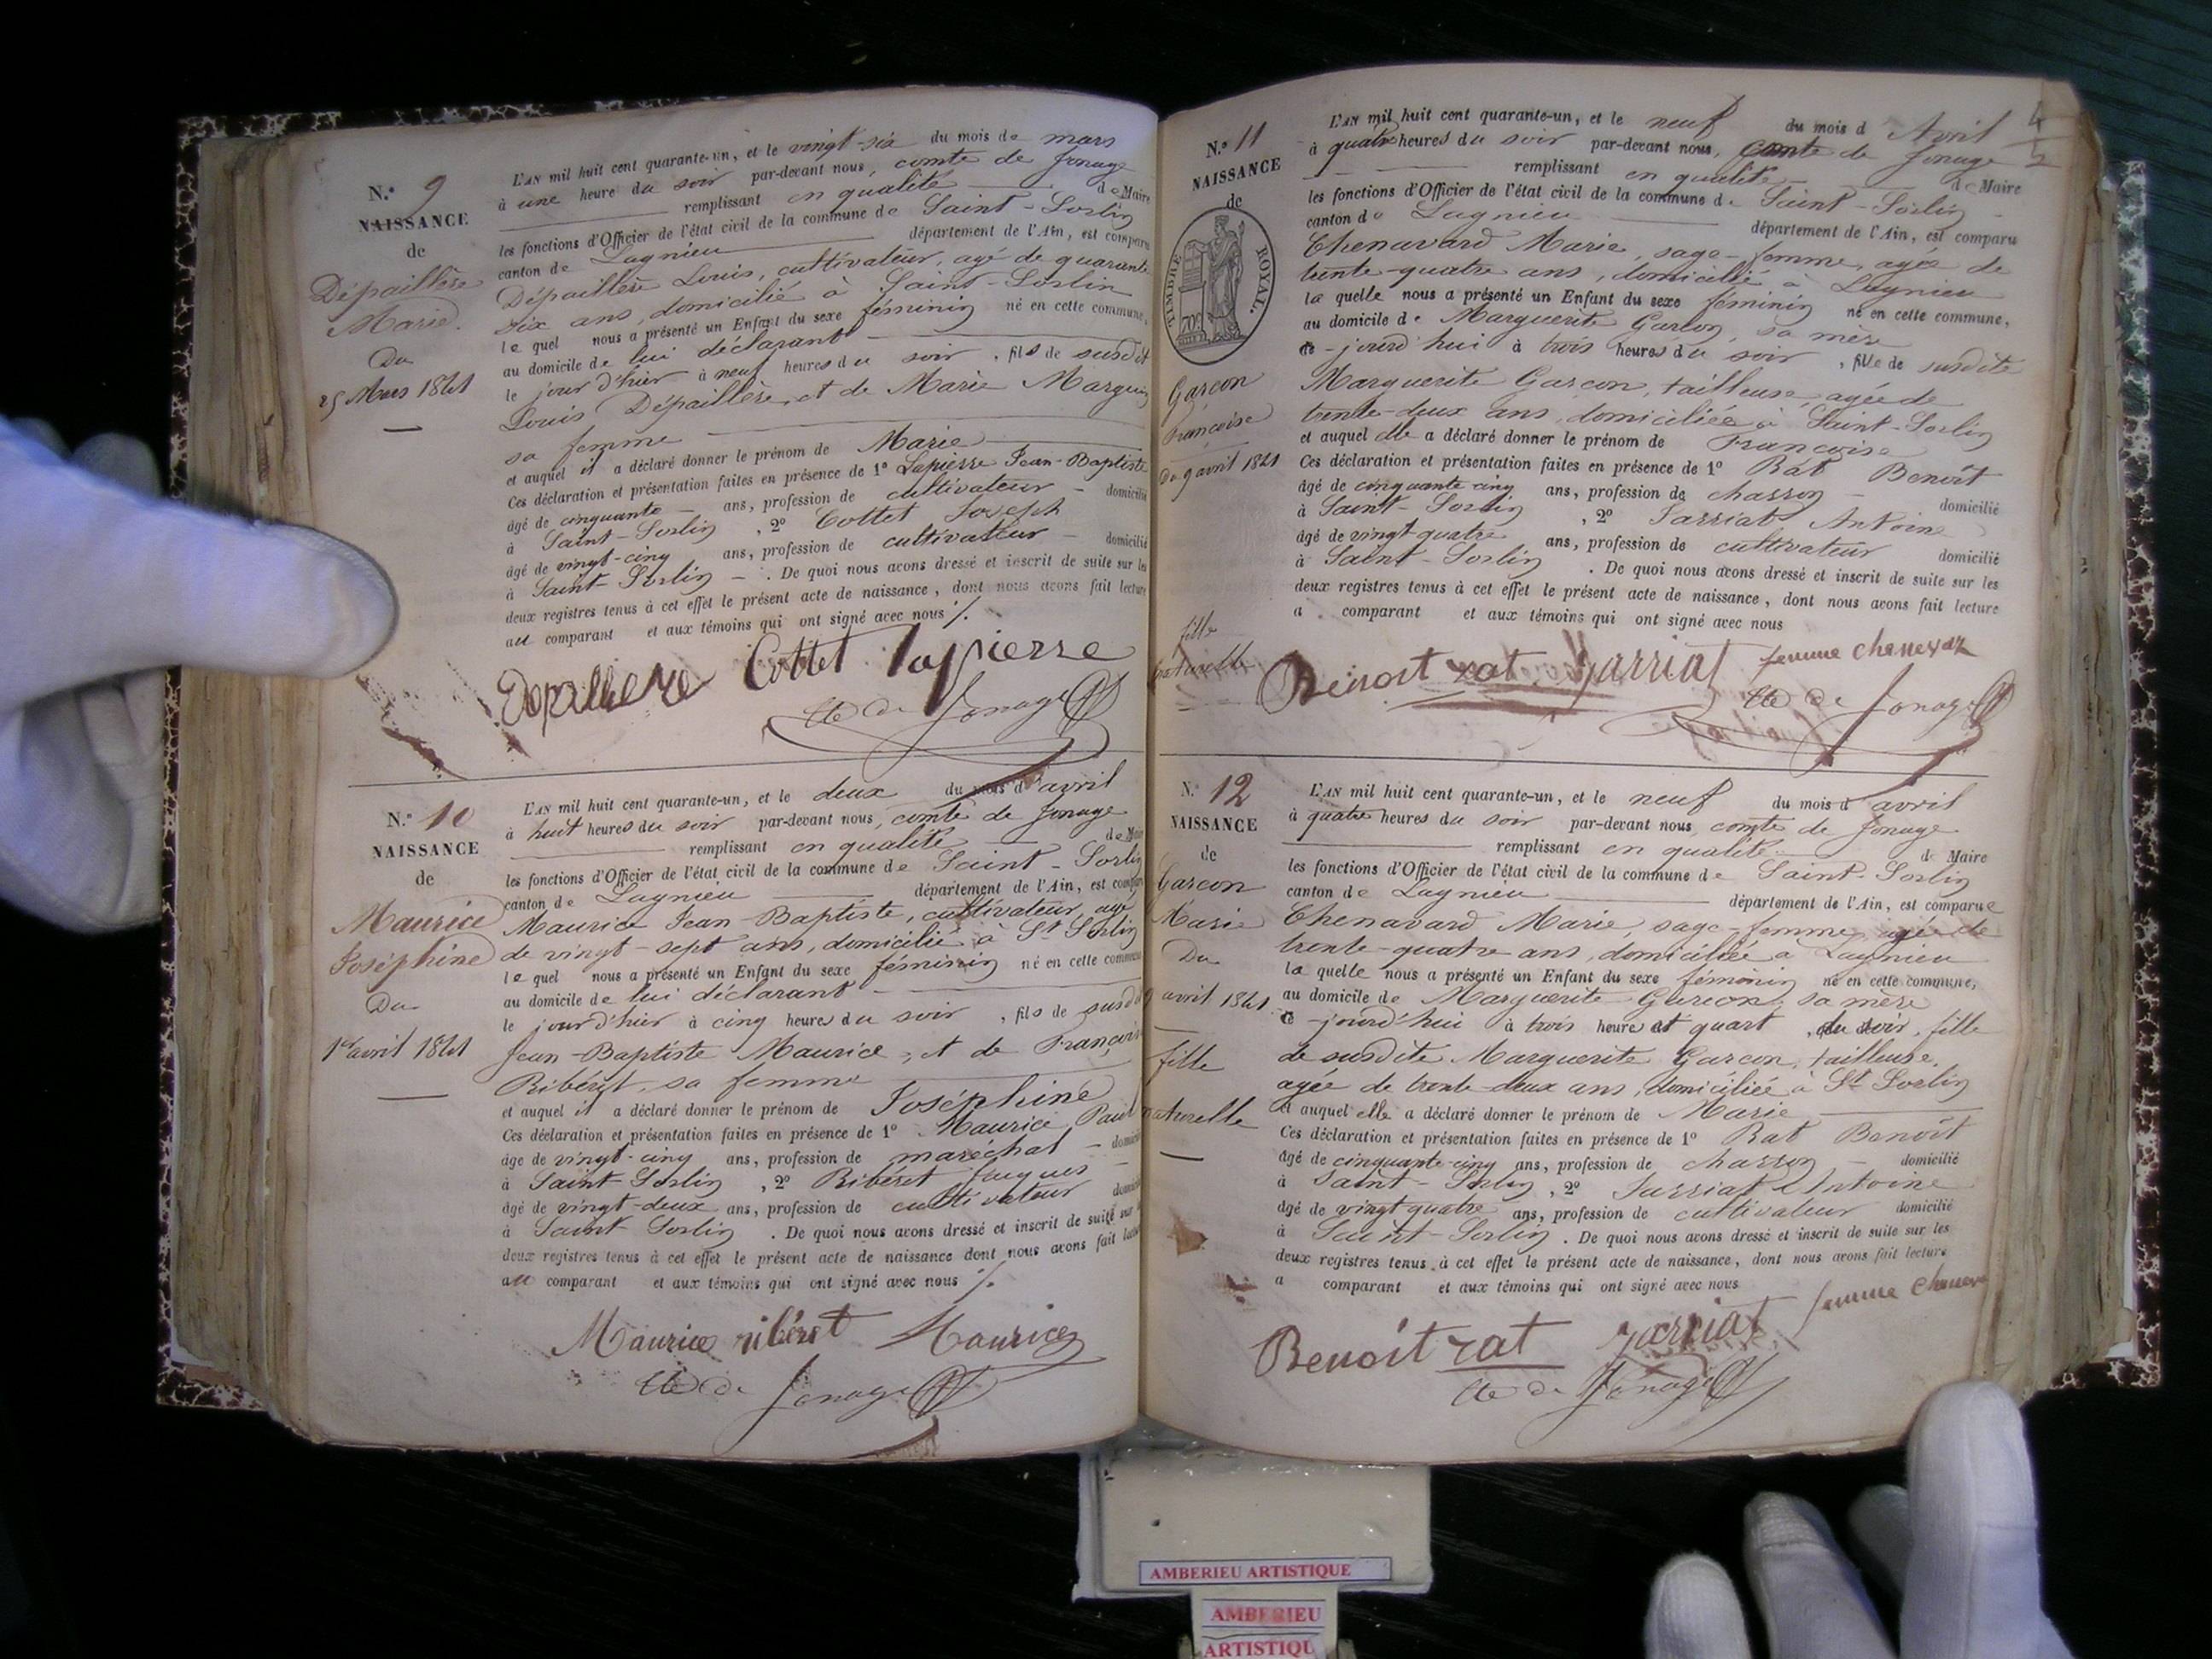 N.° 9
NAISSANCE
de
Dépaillère
Marie.
Du
25 Mars 1841
L'AN mil huit cent quarante-un, et le vingt-six du mois de mars
à une heure du soir par-devant nous, comte de Jonage
remplissant en qualité de Maire
les fonctions d'Officier de l'état civil de la commune de Saint-Sorlin
canton de Lagnieu département de l'Ain, est comparu
Dépaillère Louis, cultivateur, agé de quarante
six ans, domicilié à Saint-Sorlin
le quel nous a présenté un Enfant du sexe féminin né en cette commune,
au domicile de lui déclarant
le jour d'hier à neuf heures du soir, fils de susdit
Louis Dépaillère, et de Marie Marguin
sa femme
et auquel il a déclaré donner le prénom de Marie
Ces déclaration et présentation faites en présence de 1° Lapierre Jean-Baptiste
âgé de cinquante ans, profession de cultivateur domicilié
à Saint-Sorlin, 2° Cottet Joseph
âgé de vingt-cinq ans, profession de cultivateur domicilié
à Saint-Sorlin. De quoi nous avons dressé et inscrit de suite sur les
deux registres tenus à cet effet le présent acte de naissance, dont nous avons fait lecture
au comparant et aux témoins qui ont signé avec nous
Cottet Lapierre
Cte de Jonage
N.° 10
NAISSANCE
de
Maurice
Joséphine
Du
1er avril 1841
L'AN mil huit cent quarante-un, et le deux du mois d'avril
à huit heures du soir par-devant nous, comte de Jonage
remplissant en qualité de Maire
les fonctions d'Officier de l'état civil de la commune de Saint-Sorlin
canton de Lagnieu département de l'Ain, est comparu
Maurice Jean-Baptiste, cultivateur, agé
de vingt-sept ans, domicilié à St Sorlin
le quel nous a présenté un Enfant du sexe féminin né en cette commune
au domicile de lui déclarant
le jour d'hier à cinq heures du soir, fils de susdit
Jean-Baptiste Maurice, et de Françoise
Ribéret, sa femme
et auquel il a déclaré donner le prénom de Joséphine
Ces déclaration et présentation faites en présence de 1° Maurice Paul
âgé de vingt-cinq ans, profession de maréchal domicilié
à Saint-Sorlin, 2° Ribéret Jacques
âgé de vingt-deux ans, profession de cultivateur domicilié
à Saint-Sorlin. De quoi nous avons dressé et inscrit de suite sur les
deux registres tenus à cet effet le présent acte de naissance dont nous avons fait lecture
au comparant et aux témoins qui ont signé avec nous
Maurice ribéret Maurice
Cte de Jonage
4
N.° 11
NAISSANCE
de
TIMBRE ROYAL.
70c
Garcon
Françoise
Du 9 avril 1841
fille
naturelle
L'AN mil huit cent quarante-un, et le neuf du mois d Avril
à quatre heures du soir par-devant nous, comte de Jonage
remplissant en qualité de Maire
les fonctions d'Officier de l'état civil de la commune de Saint-Sorlin
canton de Lagnieu département de l'Ain, est comparu
Chenavard Marie, sage-femme, agée de
trente-quatre ans, domicilié à Lagnieu
la quelle nous a présenté un Enfant du sexe féminin né en cette commune,
au domicile de Marguerite Garcon, sa mère
ce-jourd'hui à trois heures du soir, fille de susdite
Marguerite Garcon, tailleuse, agée de
trente-deux ans, domiciliée à Saint-Sorlin
et auquel elle a déclaré donner le prénom de Françoise
Ces déclaration et présentation faites en présence de 1° Rat Benoît
âgé de cinquante cinq ans, profession de charron domicilié
à Saint-Sorlin, 2° Jarriat Antoine
âgé de vingt quatre ans, profession de cultivateur domicilié
à Saint-Sorlin. De quoi nous avons dressé et inscrit de suite sur les
deux registres tenus à cet effet le présent acte de naissance, dont nous avons fait lecture
a comparant et aux témoins qui ont signé avec nous
Benoit rat Jarriat femme chenevar
Cte de Jonage
N.° 12
NAISSANCE
de
Garcon
Marie
Du
9 avril 1841
fille
naturelle
L'AN mil huit cent quarante-un, et le neuf du mois d avril
à quatre heures du soir par-devant nous, comte de Jonage
remplissant en qualité de Maire
les fonctions d'Officier de l'état civil de la commune de Saint-Sorlin
canton de Lagnieu département de l'Ain, est comparue
Chenavard Marie, sage-femme, agée de
trente-quatre ans, domiciliée à Lagnieu
la quelle nous a présenté un Enfant du sexe féminin né en cette commune,
au domicile de Marguerite Garcon, sa mère
ce-jourd'hui à trois heure et quart, du soir, fille
de susdite Marguerite Garcon, tailleuse,
agée de trente-deux ans, domiciliée à St Sorlin
et auquel elle a déclaré donner le prénom de Marie
Ces déclaration et présentation faites en présence de 1° Rat Benoît
âgé de cinquante-cinq ans, profession de charron domicilié
à Saint-Sorlin, 2° Jarriat Antoine
âgé de vingt quatre ans, profession de cultivateur domicilié
à Saint-Sorlin. De quoi nous avons dressé et inscrit de suite sur les
deux registres tenus à cet effet le présent acte de naissance, dont nous avons fait lecture
a comparant et aux témoins qui ont signé avec nous
femme cheneva
Benoit rat Jarriat
Cte de Jonage
AMBERIEU ARTISTIQUE
AMBERIEU
ARTISTIQU